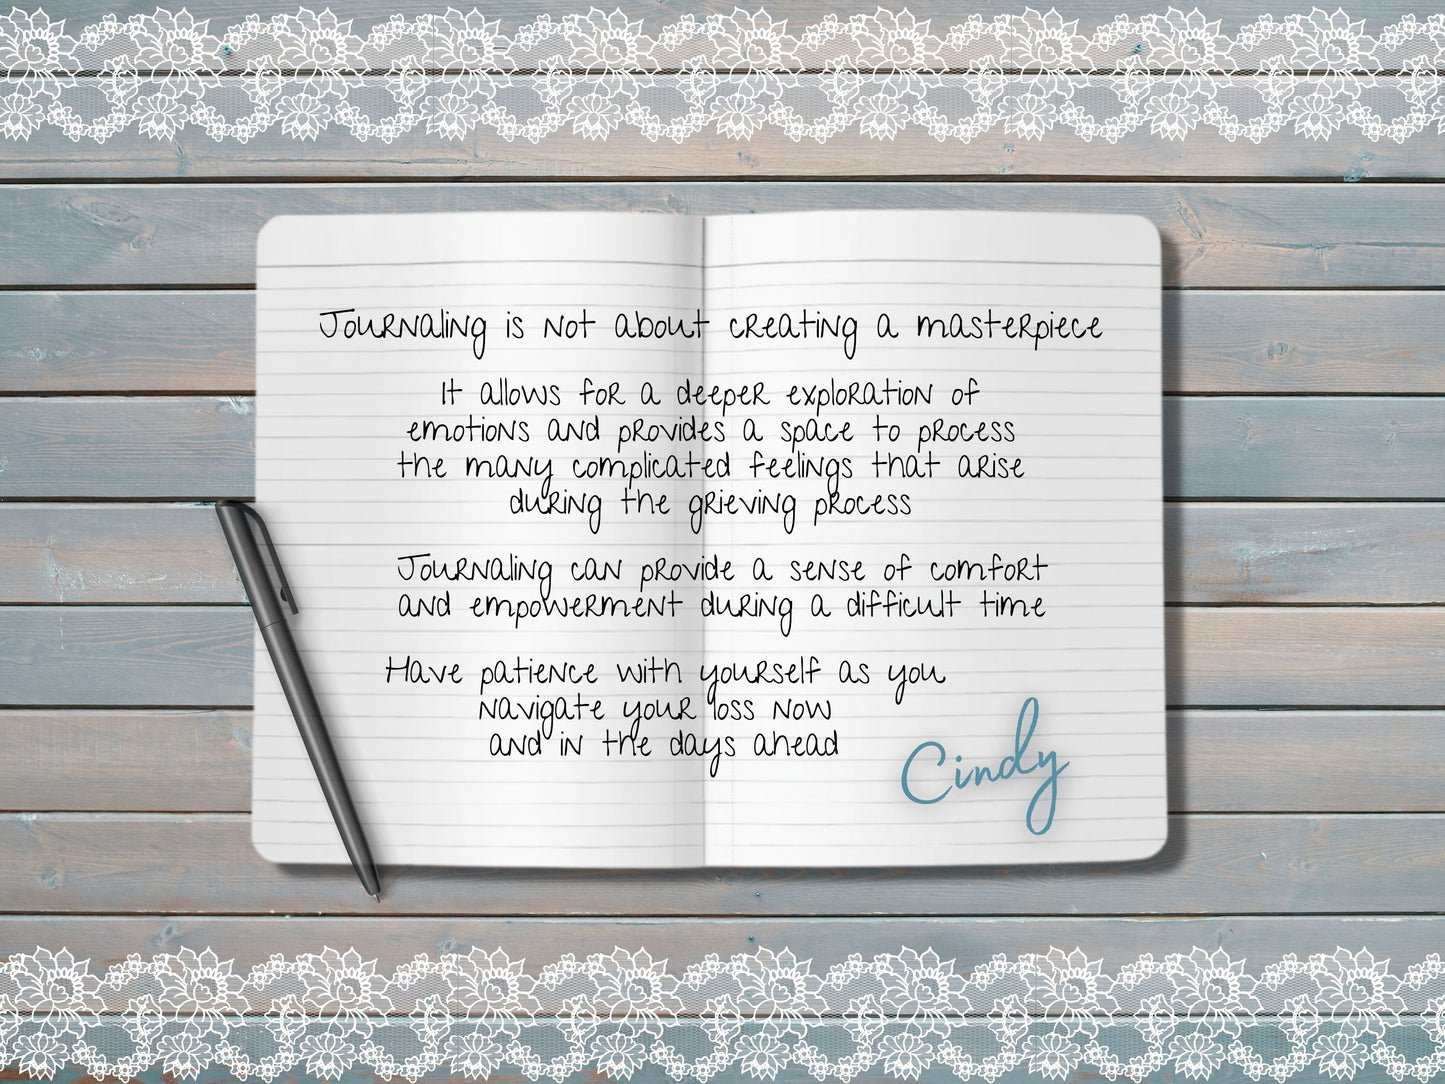 Journaling is not about creating a masterpiece
It allows for a deeper exploration of
emotions and provides a space to process
the many complicated feelings that arise
during the grieving process
Journaling can provide a sense of comfort
and empowerment during a difficult time
Have patience with yourself as you
navigate your loss now
and in the days ahead
Cindy